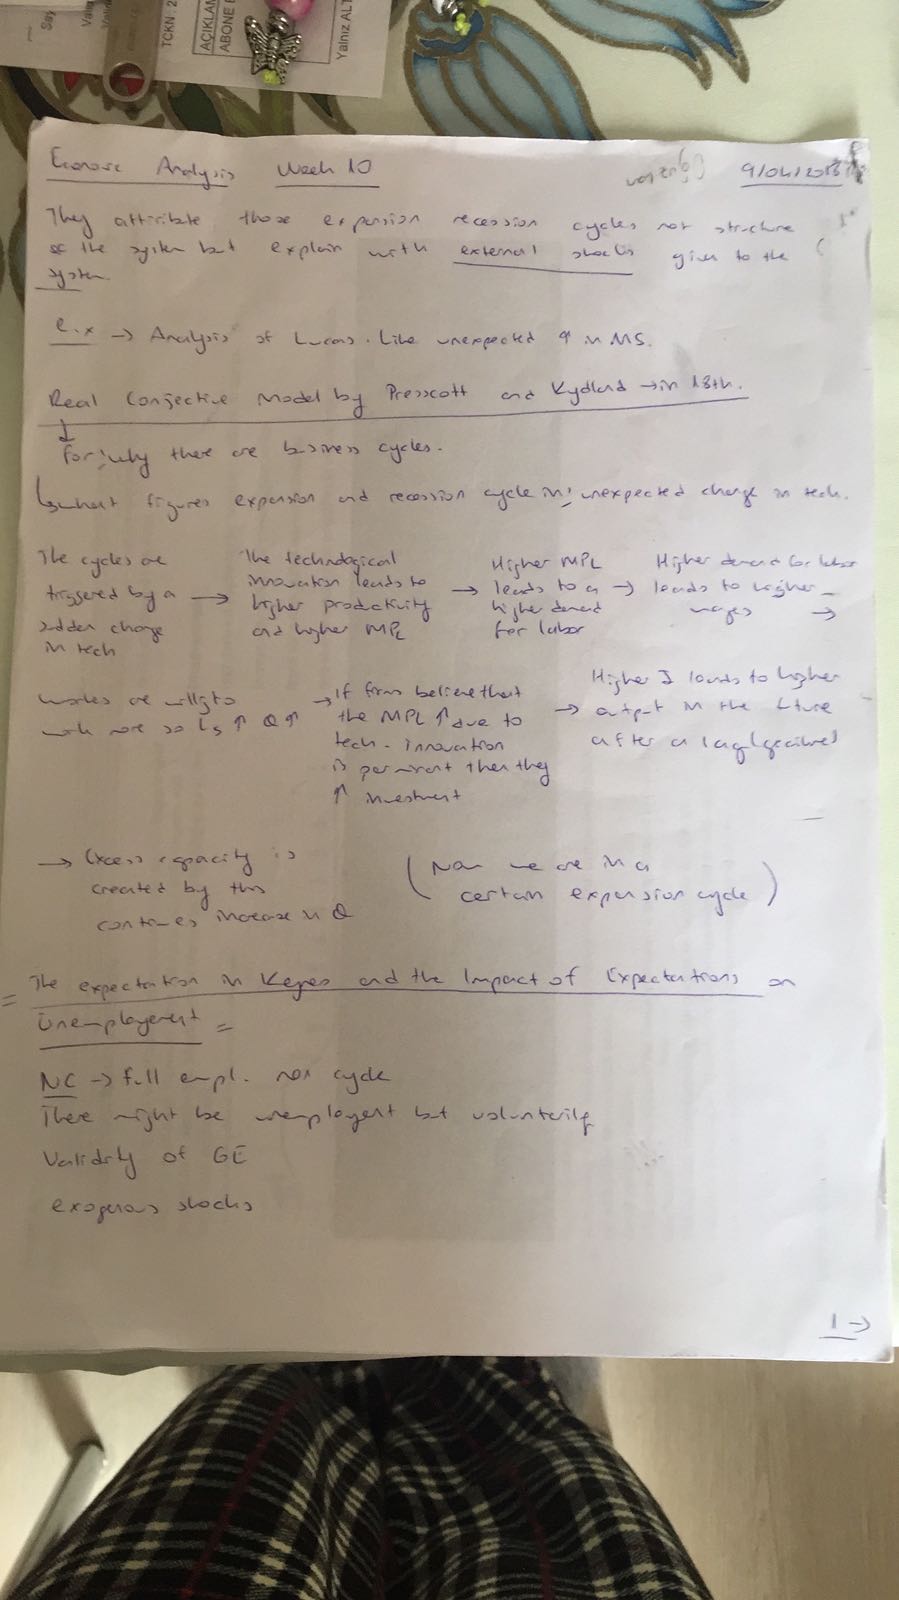 Say
TCKN: 2
AÇIKLAM
ABONE E
Yalnız ALT
Economic Analysis Week 10 9/04/2018
They attribute those expansion recession cycles not structure
of the system but explain with external shocks given to the
system.
e.x → Analysis of Lucas. Like unexpected ↑ in MS.
Real Conjective Model by Presscott and Kydland → in 18th.
↓
for; why there are business cycles.
↳ what figures expansion and recession cycle in; unexpected change in tech.
The cycles are
triggered by a →
sudden change
in tech
The technological
innovation leads to →
higher productivity
and higher MPL
Higher MPL
leads to a →
higher demand
for labor
Higher demand for labor
leads to higher
wages →
workers are willing to
work more so Ls ↑ Q ↑
→ If firms believe that
the MPL ↑ due to →
tech. innovation
is permanent then they
↑ investment
Higher I leads to higher
output in the future
after a lag
→ Excess capacity is
created by this
continues increase in Q
(Now we are in a
certain expansion cycle)
= The expectation in Keynes and the Impact of Expectations on
Unemployement =
NC → full empl. nor cycle
There might be unemployment but volunterily
Validity of GE
exogenous shocks
1 →